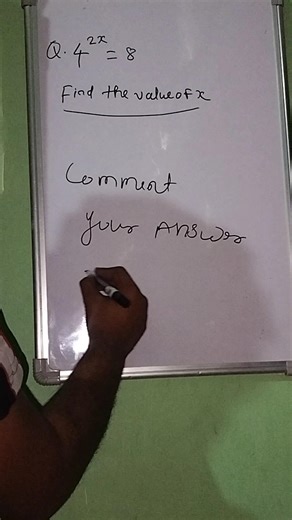 Q. 4^2x = 8
Find the value of x
Comment
your Answer